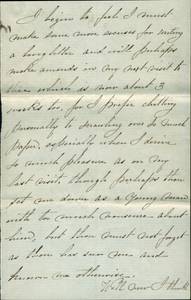 I begin to feel I must
make some more excuses for writing
a long letter and will perhaps
make amends in my next visit to
thee which is now about 3
weeks too, for I prefer chatting
personally to scrawling over so much
paper, especially when I derive
so much pleasure as on my
last visit, though perhaps thee
put me down as a young man
with too much nonsense about
him, but thou must not forget
as thou has seen me and
known me otherwise.
Well now I think